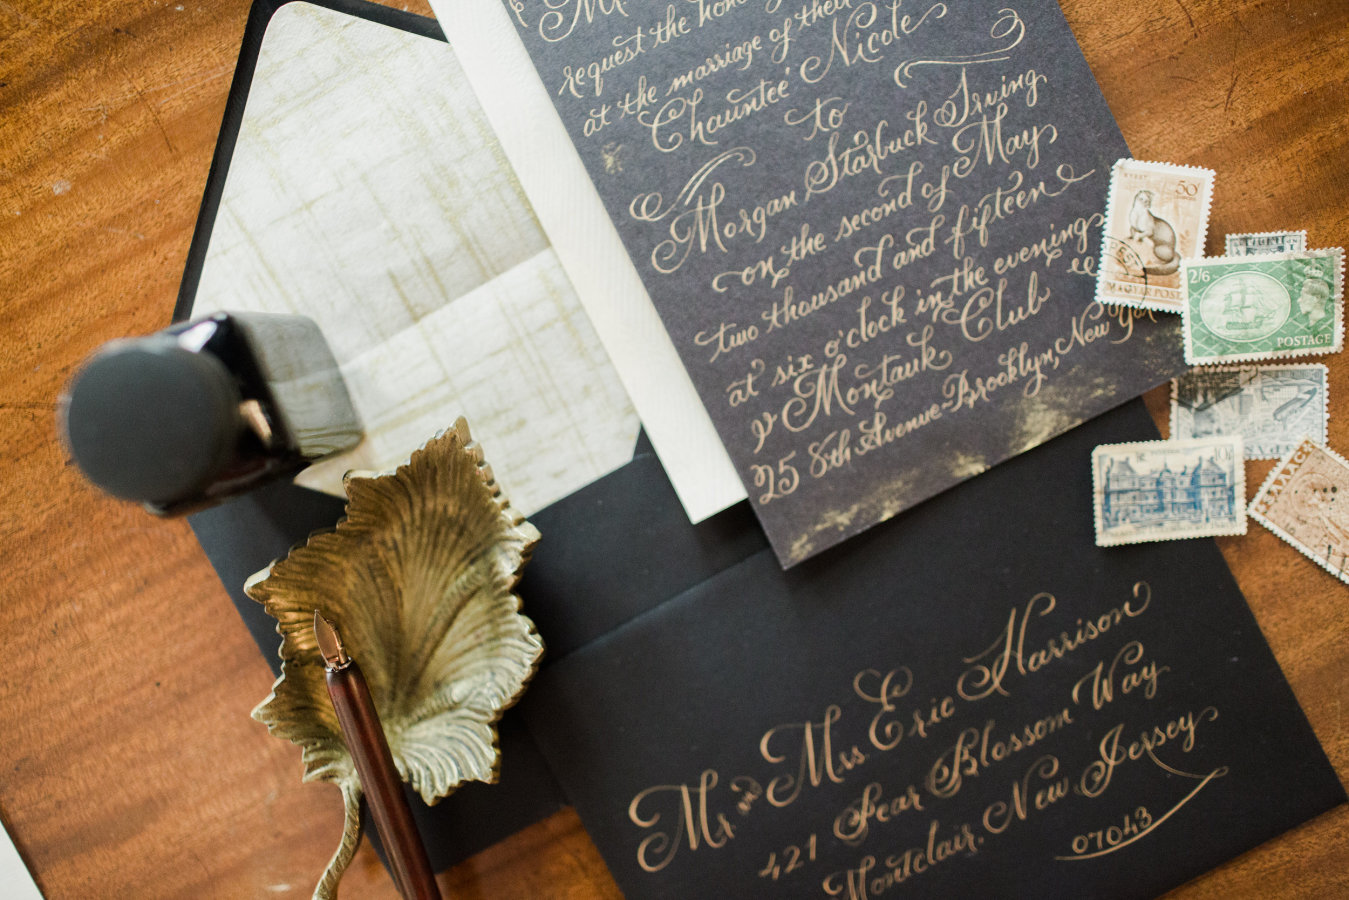 request the
at the marriage of their
Chauntee' Nicole
to
Morgan Starbuck Irving
on the second of May
two thousand and fifteen
at six o'clock in the evening
Montauk Club
25 8th Avenue-Brooklyn, New
50f
MAGYAR POSTA
2/6
POSTAGE
10f
Mr. and Mrs. Eric Harrison
421 Pear Blossom Way
Montclair, New Jersey
07043